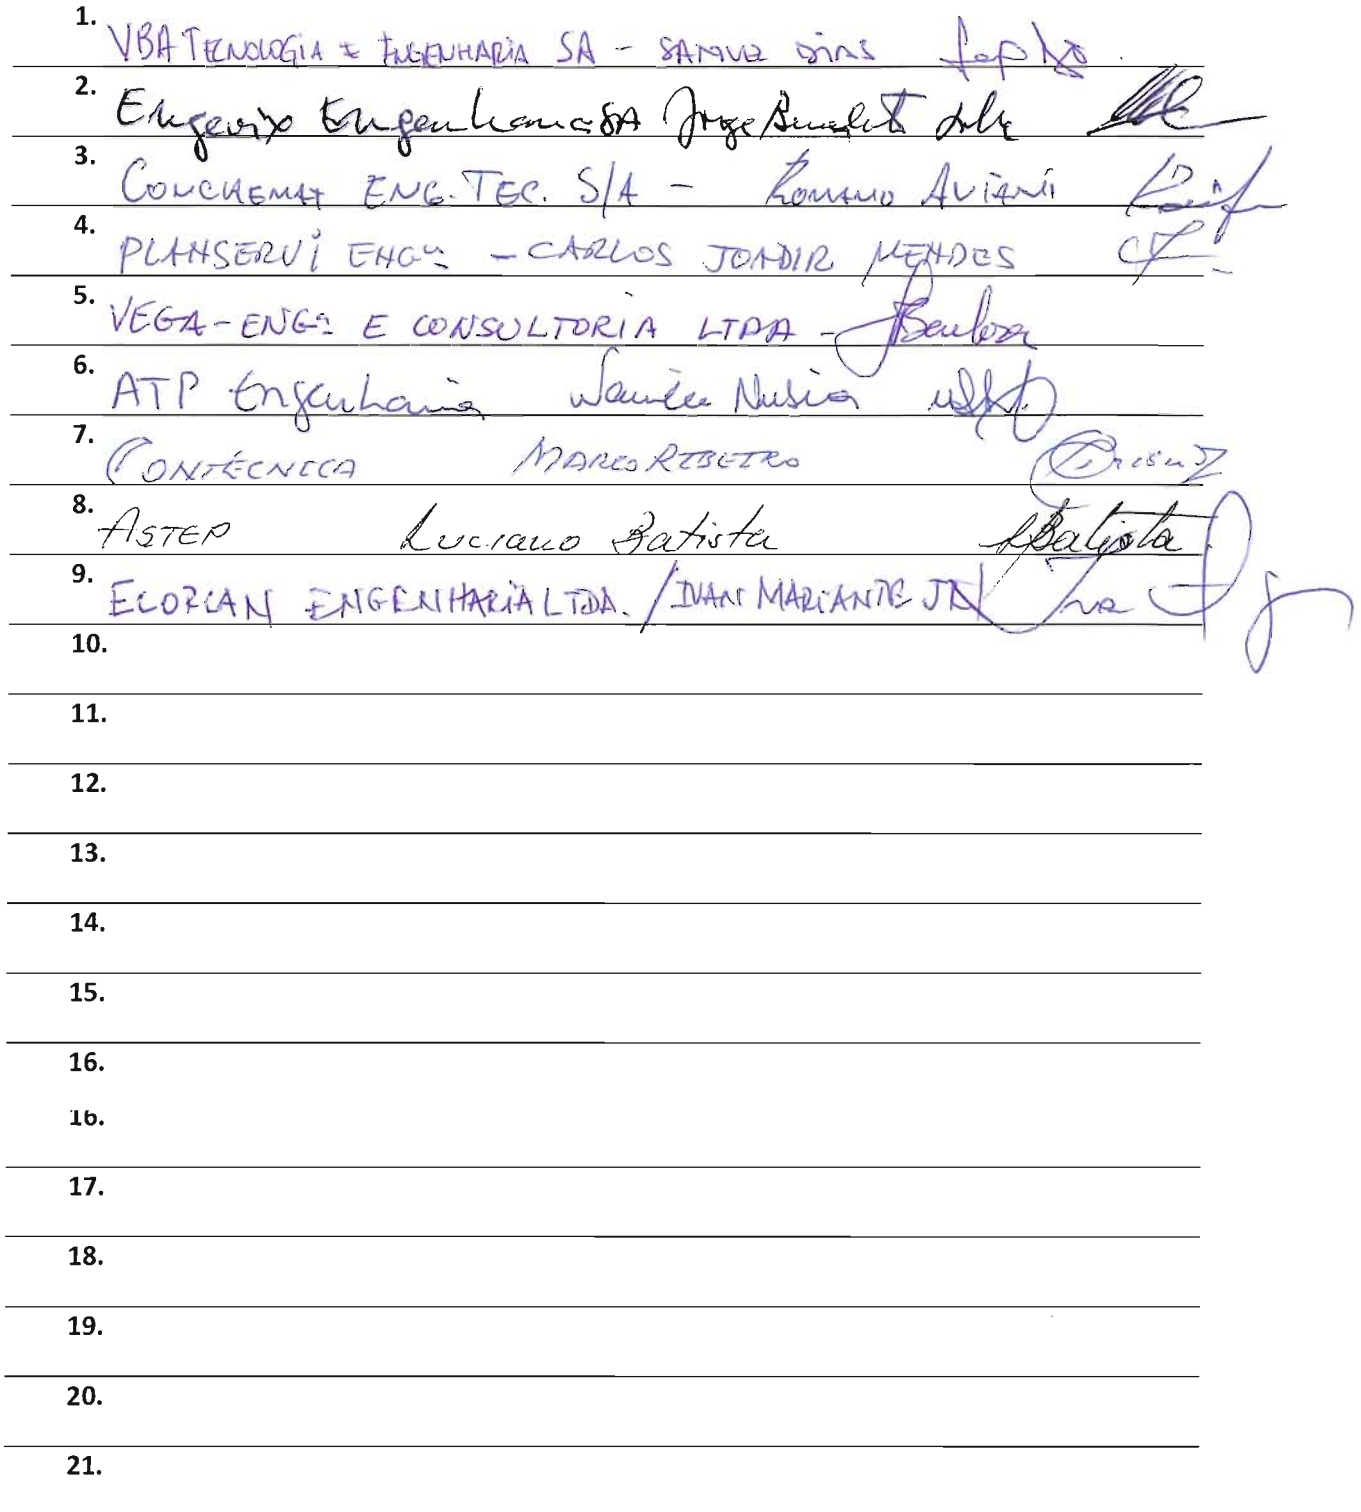 1. VBA TECNOLOGIA E ENGENHARIA SA - SAMUEL DIAS
2. Engevix Engenharia SA Jorge
3. CONCREMAT ENG. TEC. S/A - ROMANO AVIANI
4. PLANSERVI ENGª - CARLOS JOADIR MENDES
5. VEGA-ENGª E CONSULTORIA LTDA - Barbosa
6. ATP Engenharia
7. CONTÉCNICA MARCO RIBEIRO
8. ASTEP Luciano Batista Batista
9. ECOPLAN ENGENHARIA LTDA. / IVAN MARIANTE JR
10.
11.
12.
13.
14.
15.
16.
16.
17.
18.
19.
20.
21.